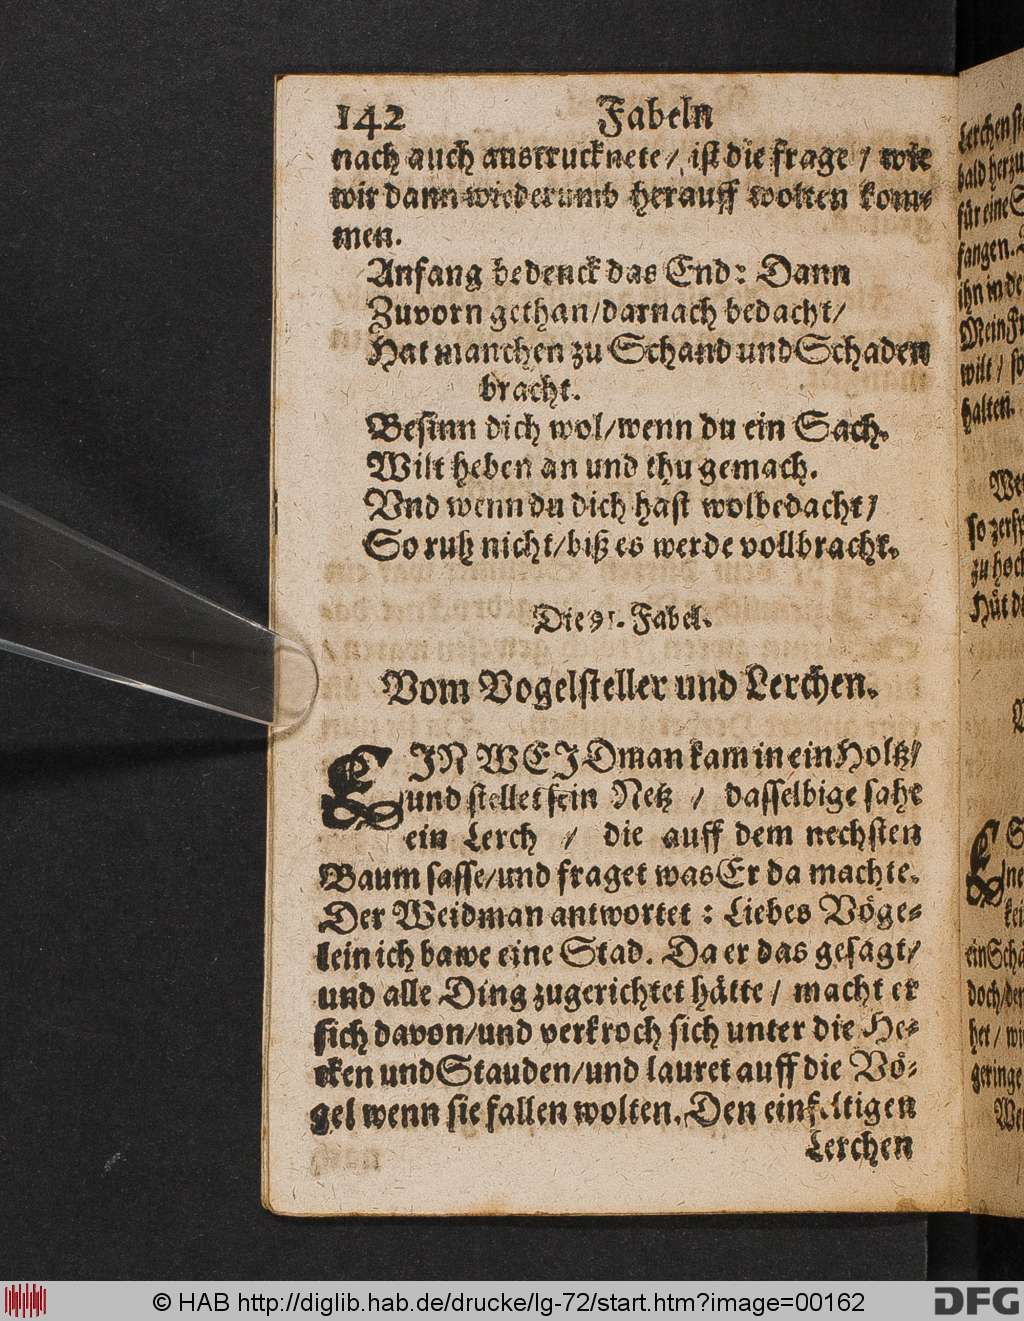 142 Fabeln
nach auch austrucknete / ist die frage / wie
wir dann wiederumb herauff wolten kom-
men.
Anfang bedenck das End: Dann
Zuvorn gethan/darnach bedacht/
Hat manchen zu Schand und Schaden
bracht.
Besinn dich wol/wenn du ein Sach.
Wilt heben an und thu gemach.
Vnd wenn du dich hast wolbedacht/
So ruh nicht/biß es werde vollbracht.
Die 91. Fabel.
Vom Vogelsteller und Lerchen.
EIN WEIDman kam in ein Holtz/
und stellet sein Netz / dasselbige sahe
ein Lerch / die auff dem nechsten
Baum sasse/und fraget was Er da machte.
Der Weidman antwortet: Liebes Vöge-
lein ich bawe eine Stad. Da er das gesagt/
und alle Ding zugerichtet hätte / macht er
sich davon/und verkroch sich unter die He-
cken und Stauden/und lauret auff die Vö-
gel wenn sie fallen wolten. Den einfeltigen
Lerchen
Lerchen
bald
für eine
fangen.
ihn in
Mein
wilt /
halten.
so
zu
Hüt
doch/
het /
geringe
© HAB http://diglib.hab.de/drucke/lg-72/start.htm?image=00162
DFG